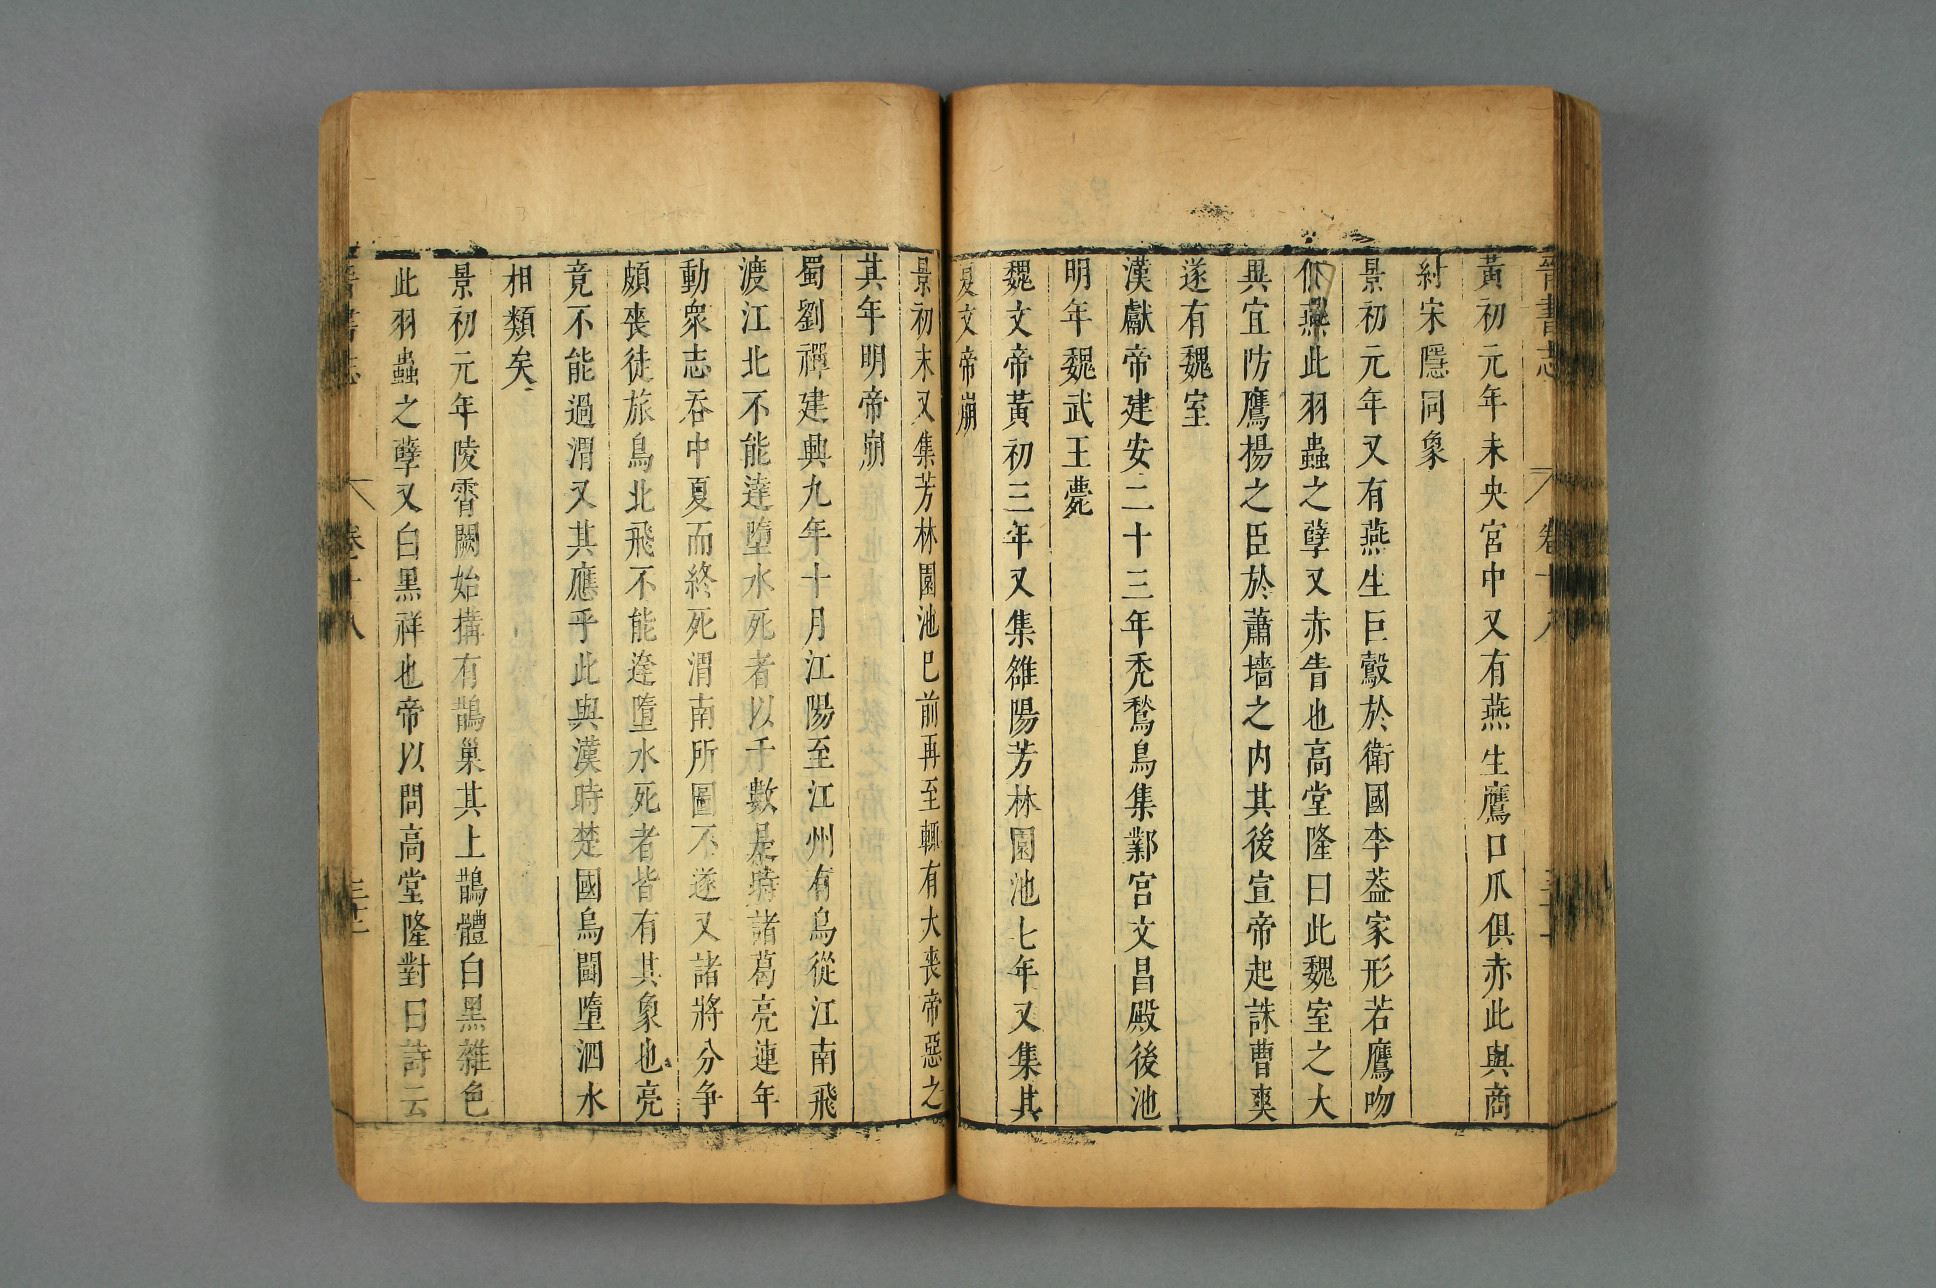 晉書志 卷十八
黃初元年未央宮中又有燕生鷹口爪俱赤此與商
紂宋隱同象
景初元年又有燕生巨鷇於衛國李葢家形若鷹吻
似燕此羽蟲之孽又赤眚也高堂隆曰此魏室之大
異宜防鷹揚之臣於蕭墻之内其後宣帝起誅曹爽
遂有魏室
漢獻帝建安二十三年禿鶖鳥集鄴宮文昌殿後池
明年魏武王薨
魏文帝黃初三年又集雒陽芳林園池七年又集其
夏文帝崩
景初末又集芳林園池巳前再至輒有大喪帝惡之
其年明帝崩
蜀劉禪建興九年十月江陽至江州有鳥從江南飛
渡江北不能達墮水死者以千數是時諸葛亮連年
動衆志吞中夏而終死渭南所圖不遂又諸將分争
頗喪徒旅鳥北飛不能達墮水死者皆有其象也亮
竟不能過渭又其應乎此與漢時楚國烏鬬墮泗水
相類矣
景初元年陵霄闕始搆有鵲巢其上鵲體白黑雜色
此羽蟲之孽又白黑祥也帝以問高堂隆對曰詩云
晉書志 卷二十八